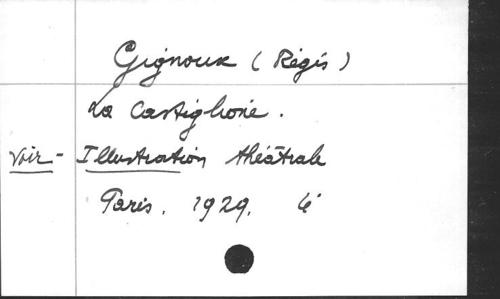 Gignoux (Régis)
La Castiglione.
Voir - Illustration théâtrale
Paris. 1929. 4°